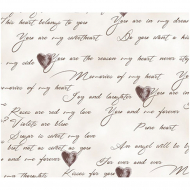 This heart belong to you You are in my
You are my sweetheart Do what you
my side You are the reason my heart never
Memories of my heart
Joy and laughter You and me forever
Roses are red my love
Violets are blue Pure heart
Sugar is sweet my love
but not as sweet as you An angel will be by
and me forever You are ever and ever
Roses for you Memories of